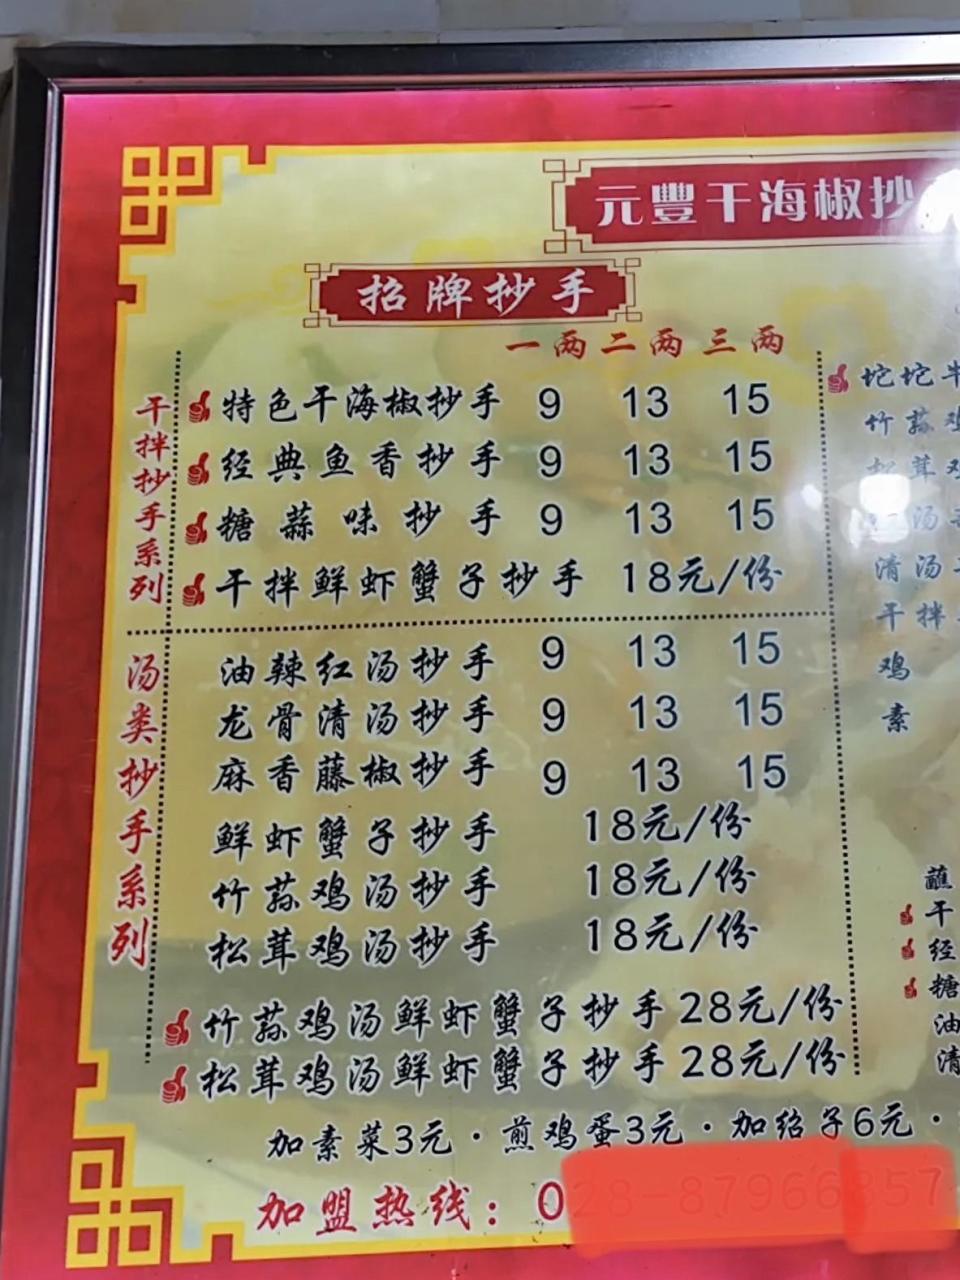 元豐干海椒抄
招牌抄手
一两 二两 三两
干拌抄手系列
特色干海椒抄手 9 13 15
经典鱼香抄手 9 13 15
糖蒜味抄手 9 13 15
干拌鲜虾蟹子抄手 18元/份
汤类抄手系列
油辣红汤抄手 9 13 15
龙骨清汤抄手 9 13 15
麻香藤椒抄手 9 13 15
鲜虾蟹子抄手 18元/份
竹荪鸡汤抄手 18元/份
松茸鸡汤抄手 18元/份
竹荪鸡汤鲜虾蟹子抄手 28元/份
松茸鸡汤鲜虾蟹子抄手 28元/份
坨坨牛
竹荪鸡
松茸鸡
汤
清汤
干拌
鸡
素
蘸
干
经
糖
油
清
加素菜3元·煎鸡蛋3元·加绍子6元·
加盟热线：0